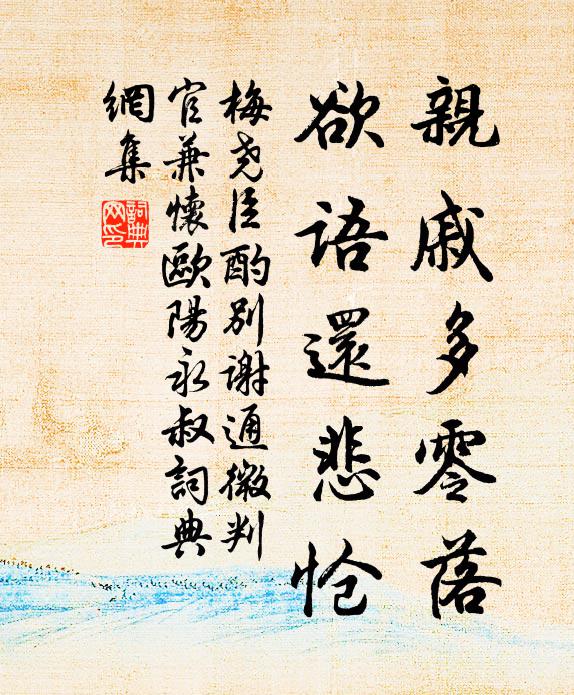 親戚多零落
欲語還悲愴
梅尧臣酌别谢通微判
官兼懷歐陽永叔詞典
網集
詞典网印